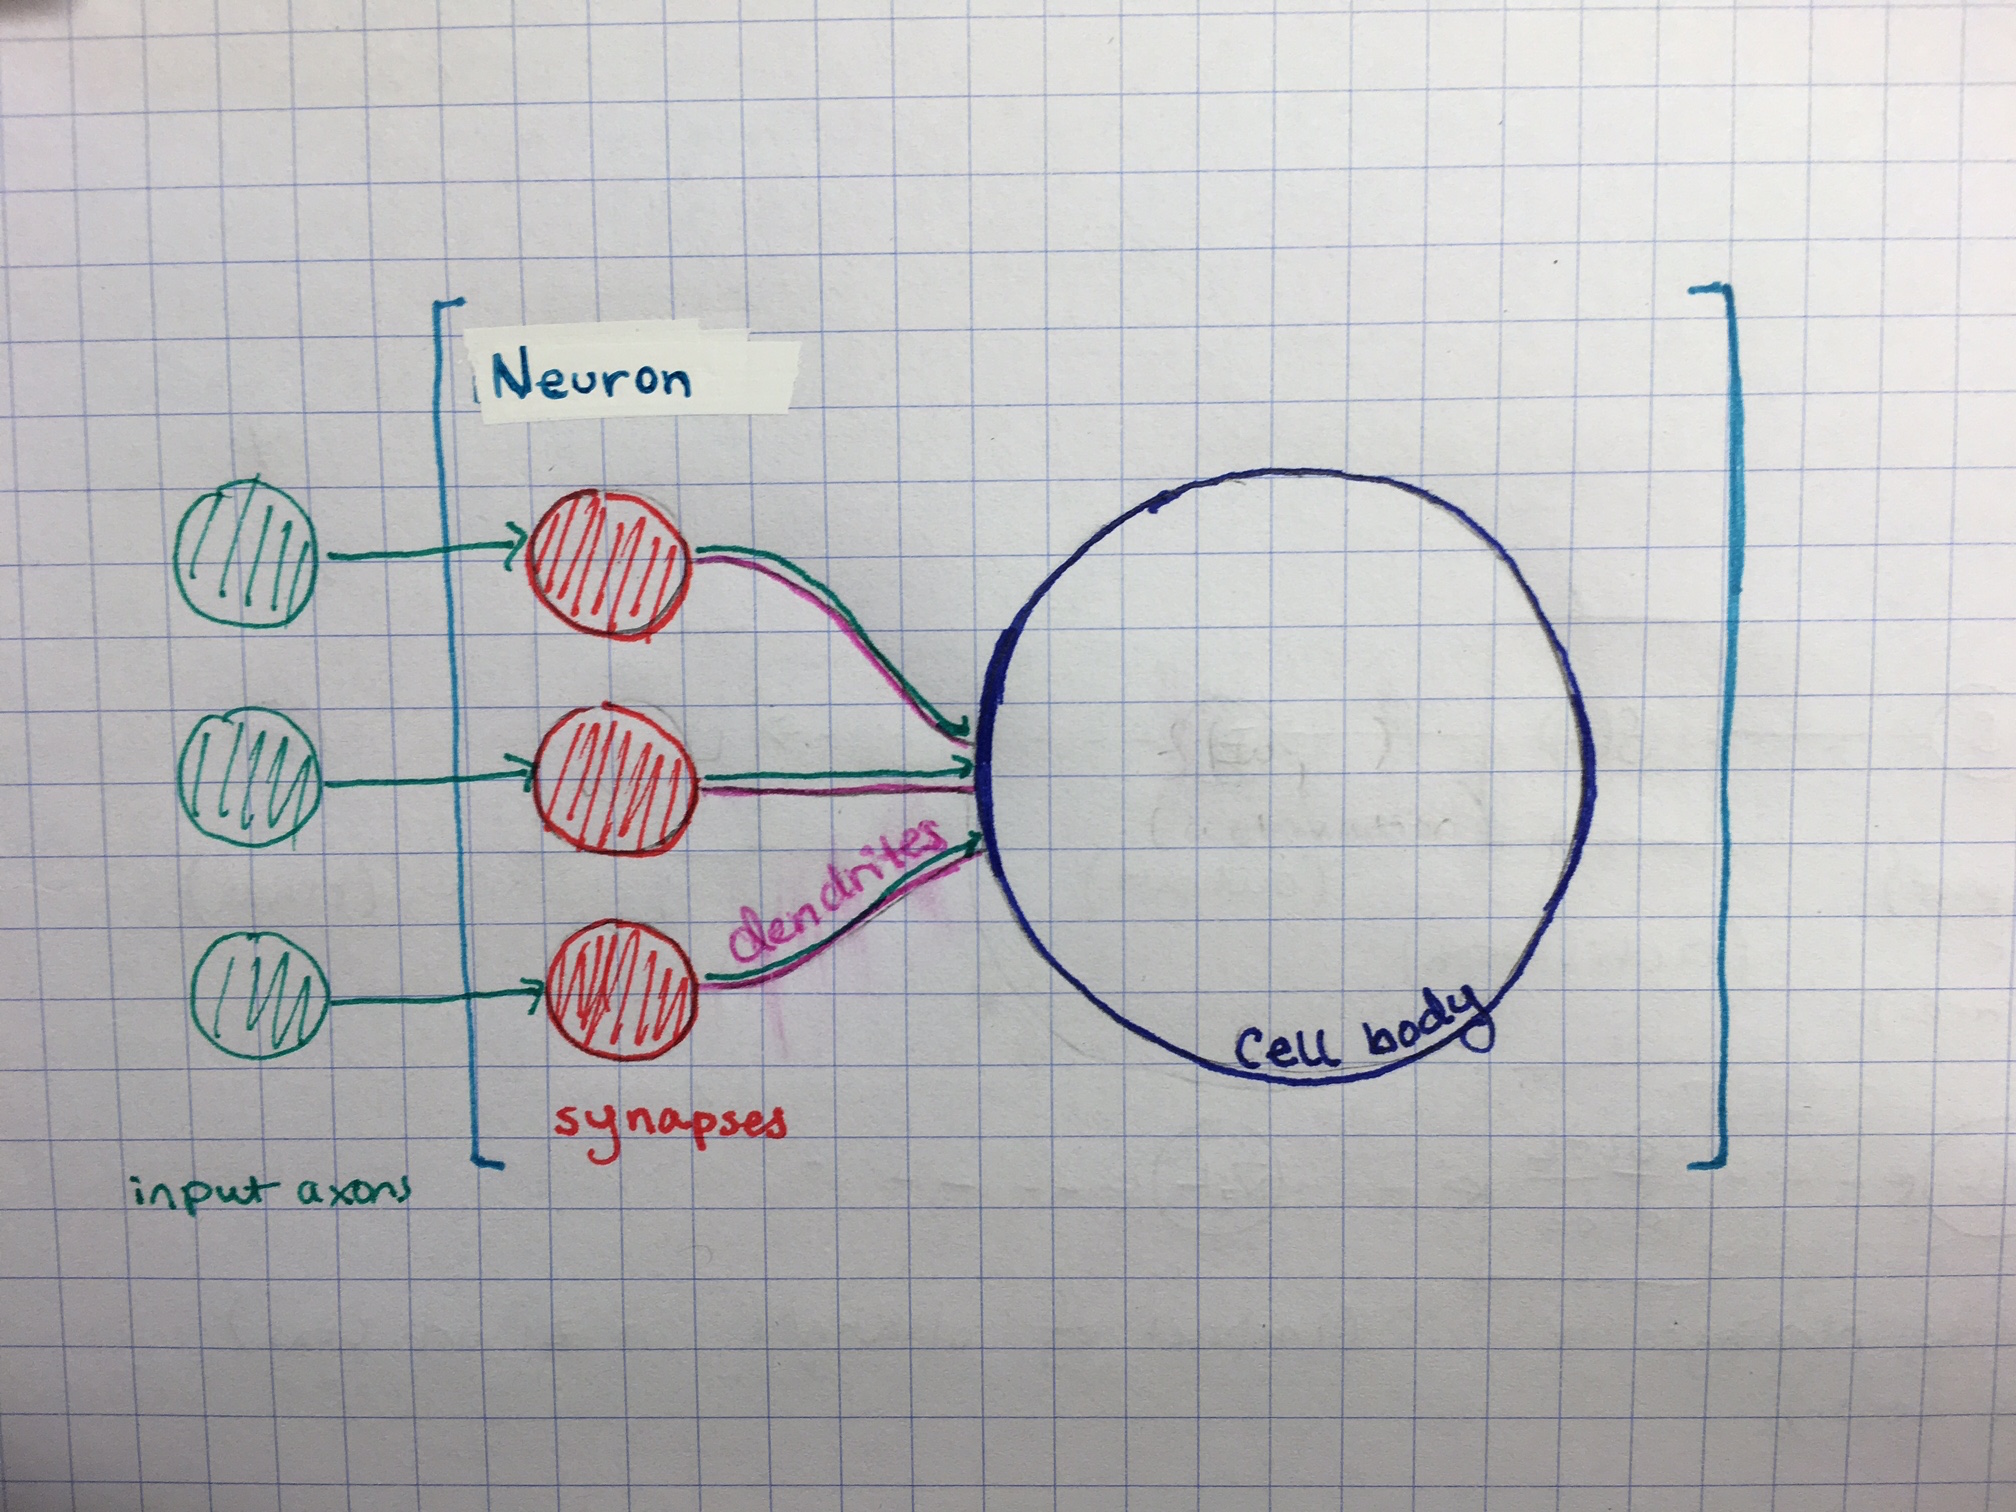 Neuron
dendrites
Cell body
synapses
input axons